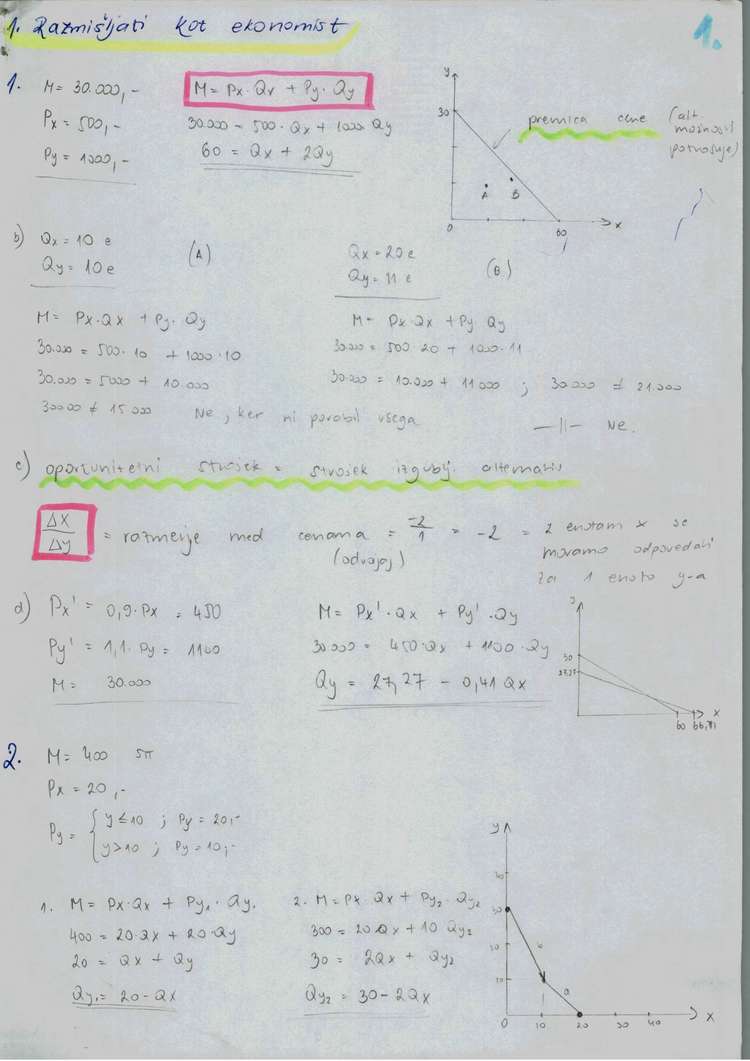 1. Razmišljati kot ekonomist
1.
1. M= 30.000,-
M= Px·Qx + Py·Qy
Px = 500,-
30.000 = 500·Qx + 1000 Qy
Py = 1000,-
60 = Qx + 2Qy
y
30
A
B
0
60
x
premica cene (alt. možnosti potrošnje)
b) Qx = 10 e
Qy = 10 e
(A)
Qx = 20 e
Qy = 11 e
(B)
M= Px·Qx + Py·Qy
30.000 = 500·10 + 1000·10
30.000 = 5000 + 10.000
30000 ≠ 15000 Ne, ker ni porabil vsega
M= Px·Qx + Py Qy
30.000 = 500·20 + 1000·11
30.000 = 10.000 + 11000 ; 30.000 ≠ 21.000
—||— Ne.
c) oportunitetni strošek = strošek izgublj. alternativ
Δx/Δy = razmerje med cenama (odvajaj) = -2/1 = -2 = 2 enotam x se
moramo odpovedati
za 1 enoto y-a
d) Px' = 0,9·Px = 450
Py' = 1,1·Py = 1100
M= 30.000
M= Px'·Qx + Py'·Qy
30000 = 450·Qx + 1100·Qy
Qy = 27,27 - 0,41 Qx
y
30
27,27
60
x
2. M= 400 SIT
Px = 20,-
Py = { y≤10 ; Py = 20,-
y>10 ; Py = 10,-
1. M= Px·Qx + Py1·Qy1
400 = 20·Qx + 20·Qy
20 = Qx + Qy
Qy1 = 20 - Qx
2. M= Px·Qx + Py2·Qy2
300 = 20Qx + 10 Qy2
30 = 2Qx + Qy2
Qy2 = 30 - 2Qx
y
30
10
a
0
10
20
30
40
x